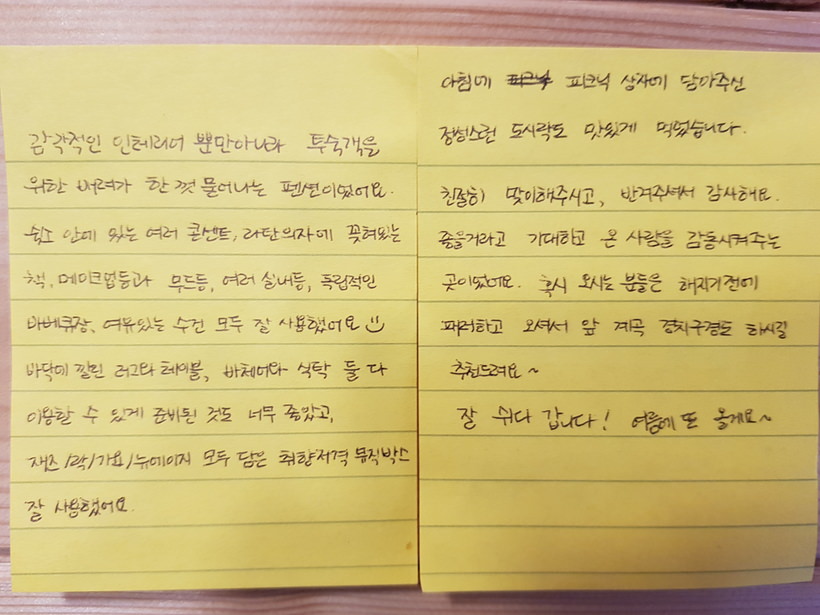 감각적인 인테리어 뿐만아니라 투숙객을
위한 배려가 한 껏 묻어나는 펜션이었어요.
숙소 안에 있는 여러 콘센트, 라탄의자에 꽂혀있는
책, 메이크업등과 무드등, 여러 실내등, 독립적인
바베큐장, 여유있는 수건 모두 잘 사용했어요
바닥에 깔린 러그와 테이블, 바체어와 식탁 둘 다
이용할 수 있게 준비된 것도 너무 좋았고,
재즈/락/가요/뉴에이지 모두 담은 취향저격 뮤직박스
잘 사용했어요.
아침에 피크닉 상자에 담아주신
정성스런 도시락도 맛있게 먹었습니다.
친절히 맞이해주시고, 반겨주셔서 감사해요.
좋을거라고 기대하고 온 사람을 감동시켜주는
곳이었어요. 혹시 오시는 분들은 해지기전에
오셔서 앞 계곡 경치구경도 하시길
추천드려요~
잘 쉬다 갑니다! 여름에 또 올게요~